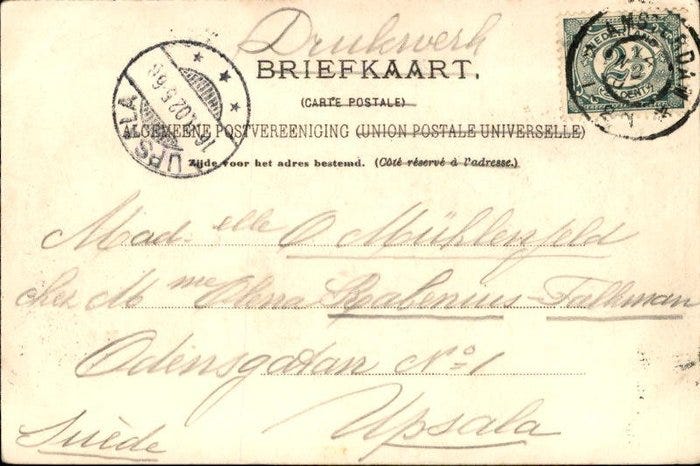 Drukwerk
BRIEFKAART.
(CARTE POSTALE)
ALGEMEENE POSTVEREENIGING (UNION POSTALE UNIVERSELLE)
Zijde voor het adres bestemd. (Côté réservé à l'adresse.)
UPSALA
AMSTERDAM
NEDERLAND
2½
CENT
Mad. elle O Mühlenfeld
chez M me Olena Spalenius-Falkman
Odensgatan No 1
Upsala
Suède